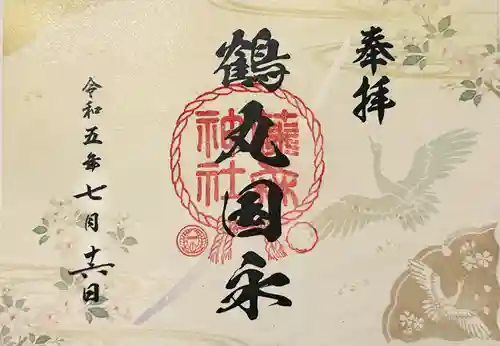 奉拝
鶴丸国永
藤森
神社
令和五年七月十六日